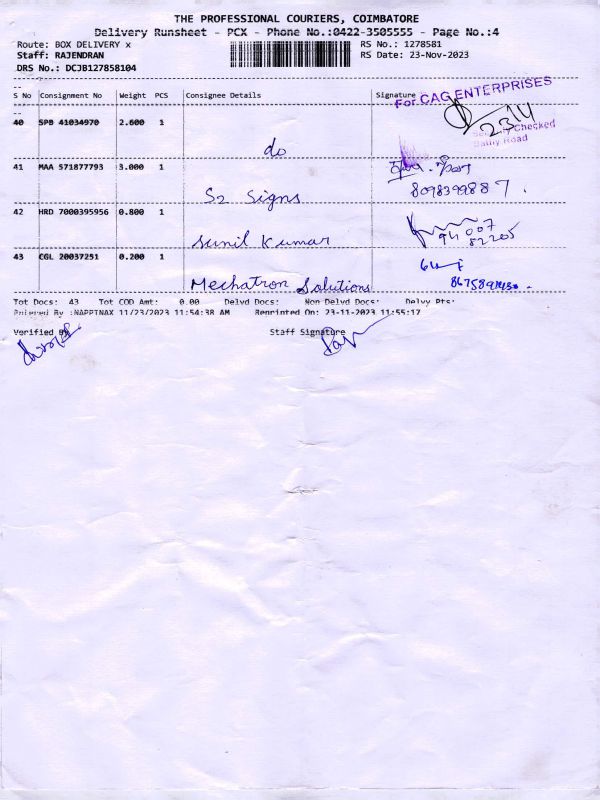 THE PROFESSIONAL COURIERS, COIMBATORE
Delivery Runsheet - PCX - Phone No.:0422-3505555 - Page No.:4
Route: BOX DELIVERY x RS No.: 1278581
Staff: RAJENDRAN RS Date: 23-Nov-2023
DRS No.: DCJB127858104
S No Consignment No Weight PCS Consignee Details Signature
For CAG ENTERPRISES
40 SPB 41034970 2.600 1
23/4
Checked
Road
do
41 MAA 571877793 3.000 1
S2 Signs 8098399887.
42 HRD 7000395956 0.800 1
94 007
82205
Sunil Kumar
43 CGL 20037251 0.200 1
Mechatron Solutions
Tot Docs: 43 Tot COD Amt: 0.00 Delvd Docs: Non Delvd Docs: Delvy Pts:
Entered By :NAPPINAX 11/23/2023 11:54:38 AM Reprinted On: 23-11-2023 11:55:17
Verified By Staff Signature